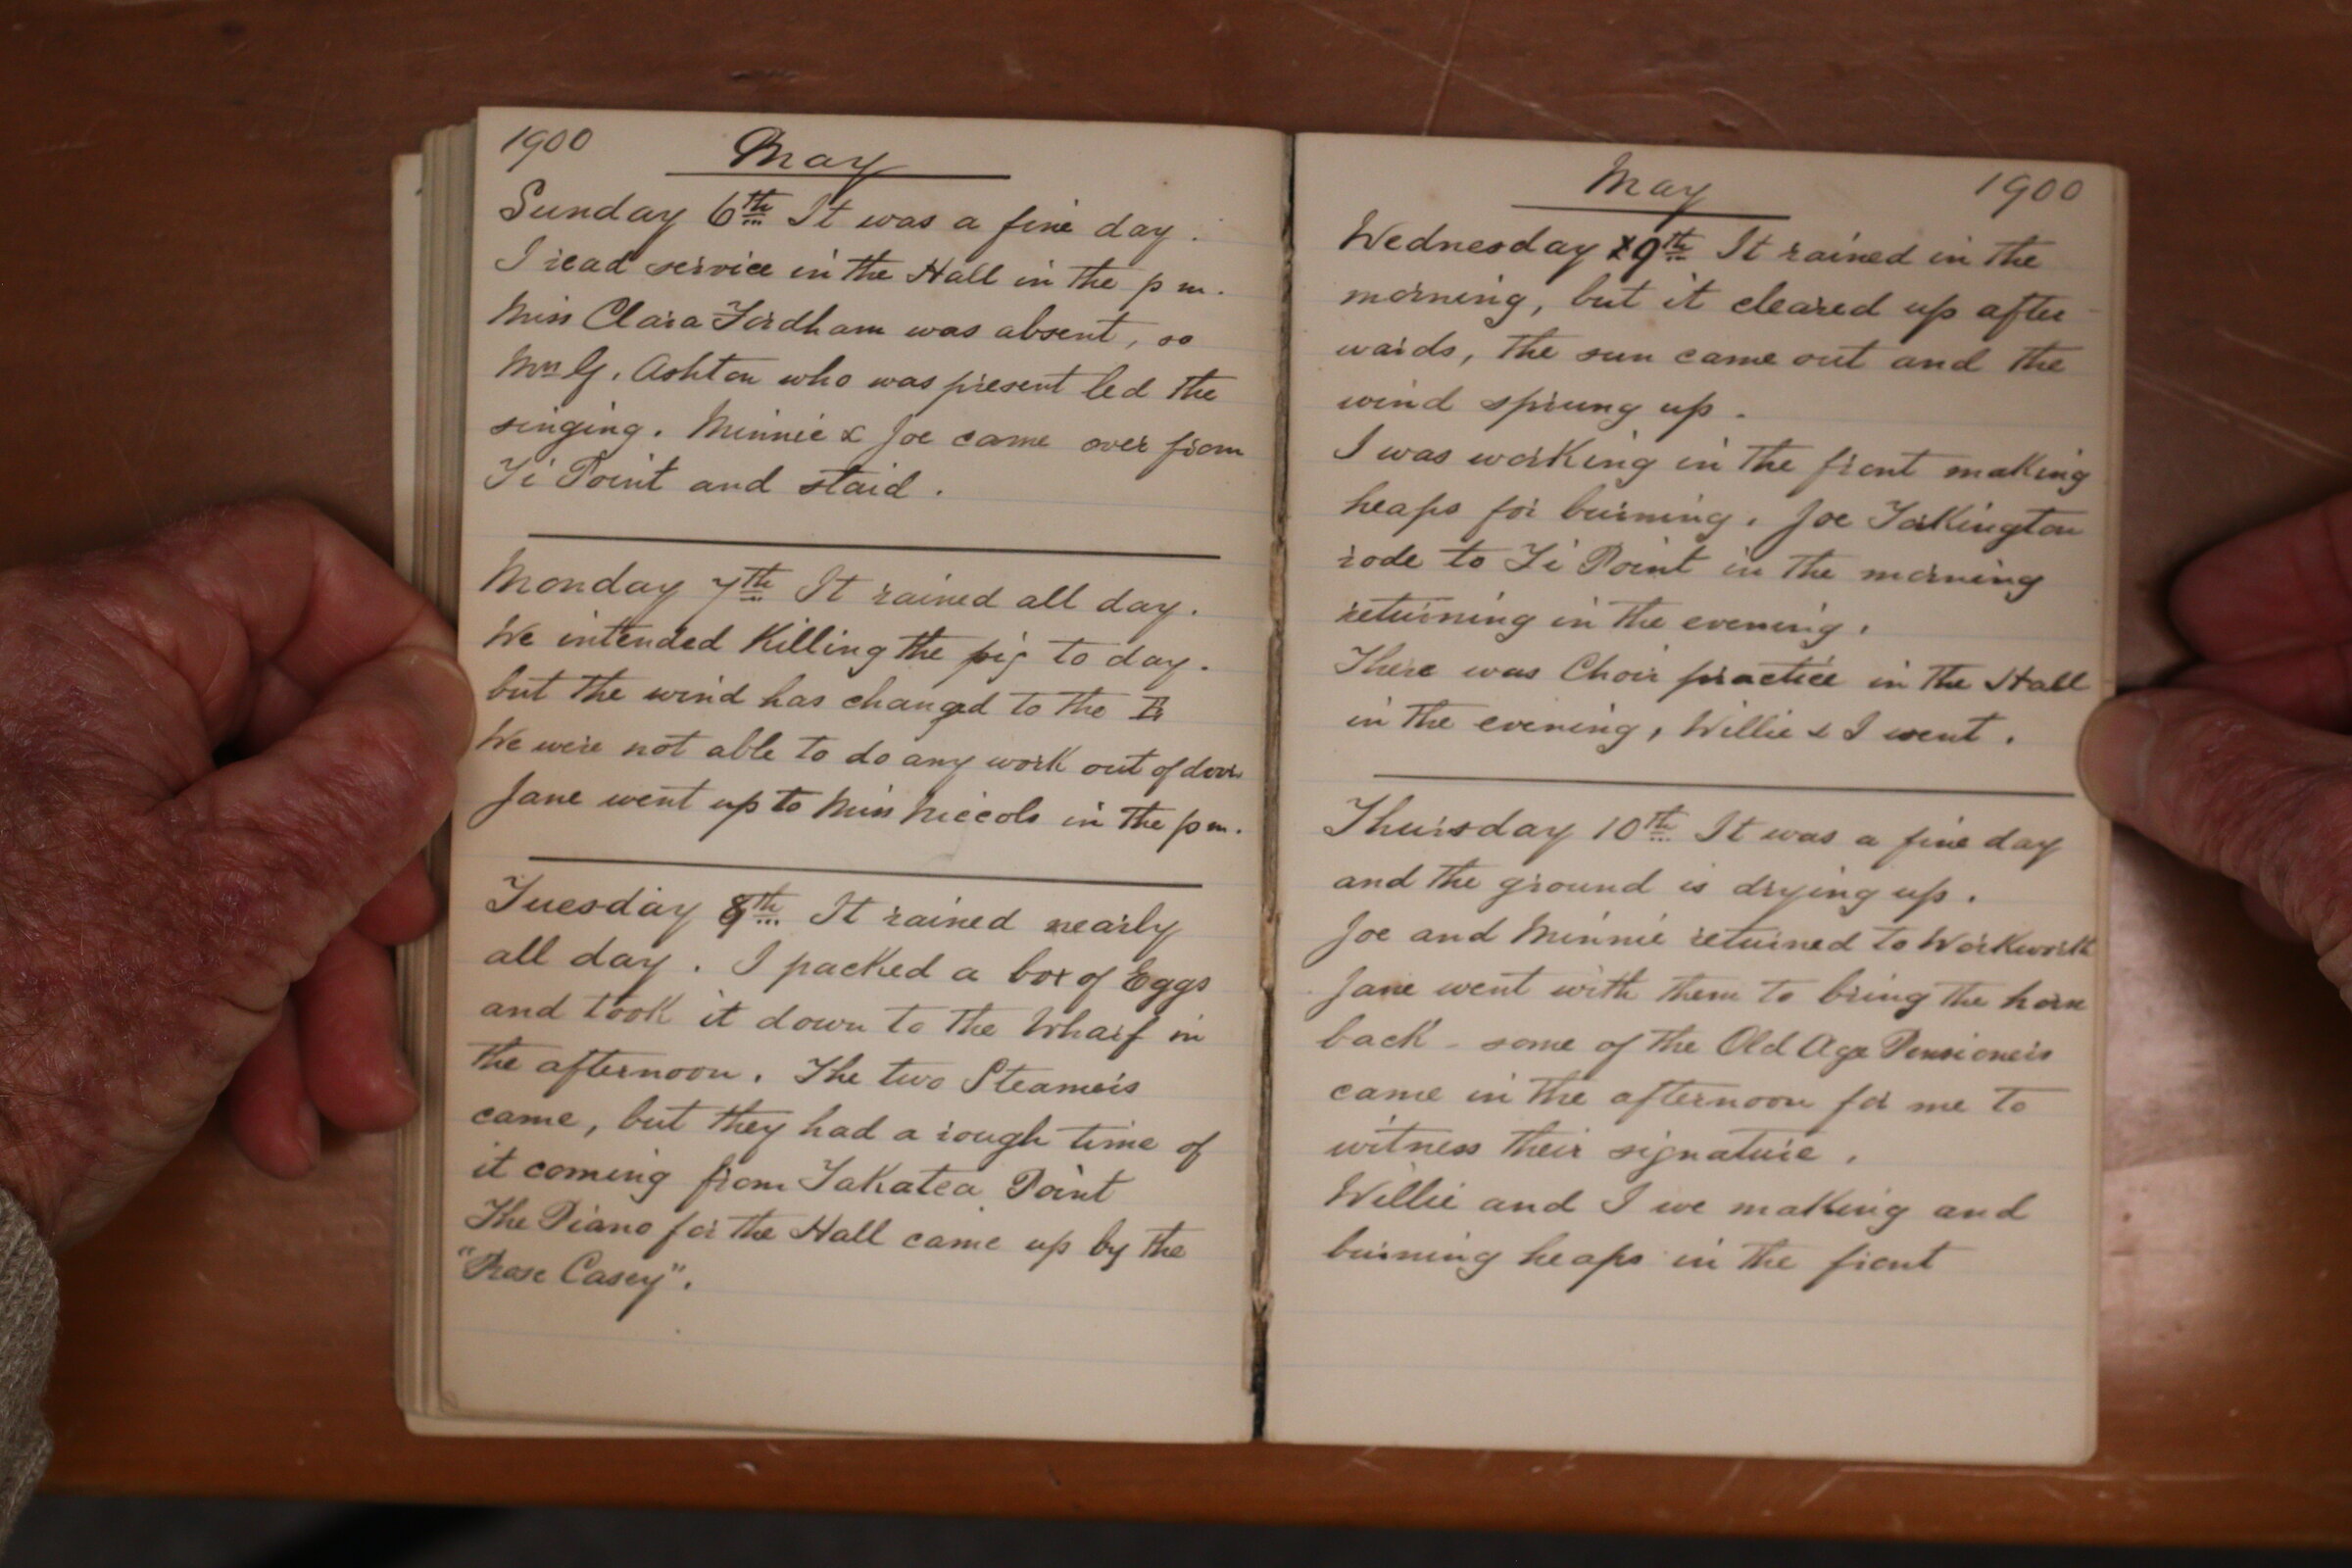 1900 May
Sunday 6th It was a fine day.
I read service in the Hall in the p m.
Miss Clara Fordham was absent, so
Mrs G. Ashton who was present led the
singing. Minnie & Joe came over from
Ti Point and staid.
Monday 7th It rained all day.
We intended Killing the pig to day.
but the wind has changed to the
We were not able to do any work out of doors
Jane went up to Miss Niccols in the p m.
Tuesday 8th It rained nearly
all day. I packed a box of Eggs
and took it down to the Wharf in
the afternoon. The two Steamers
came, but they had a rough time of
it coming from Takatea Point
The Piano for the Hall came up by the
"Rose Casey".
May 1900
Wednesday 9th It rained in the
morning, but it cleared up after-
wards, the sun came out and the
wind sprung up.
I was working in the front making
heaps for burning. Joe Torkington
rode to Ti Point in the morning
returning in the evening.
There was Choir practice in the Hall
in the evening, Willie & I went.
Thursday 10th It was a fine day
and the ground is drying up.
Joe and Minnie returned to Warkworth
Jane went with them to bring the horse
back - some of the Old Age Pensioners
came in the afternoon for me to
witness their signature.
Willie and I we making and
burning heaps in the front